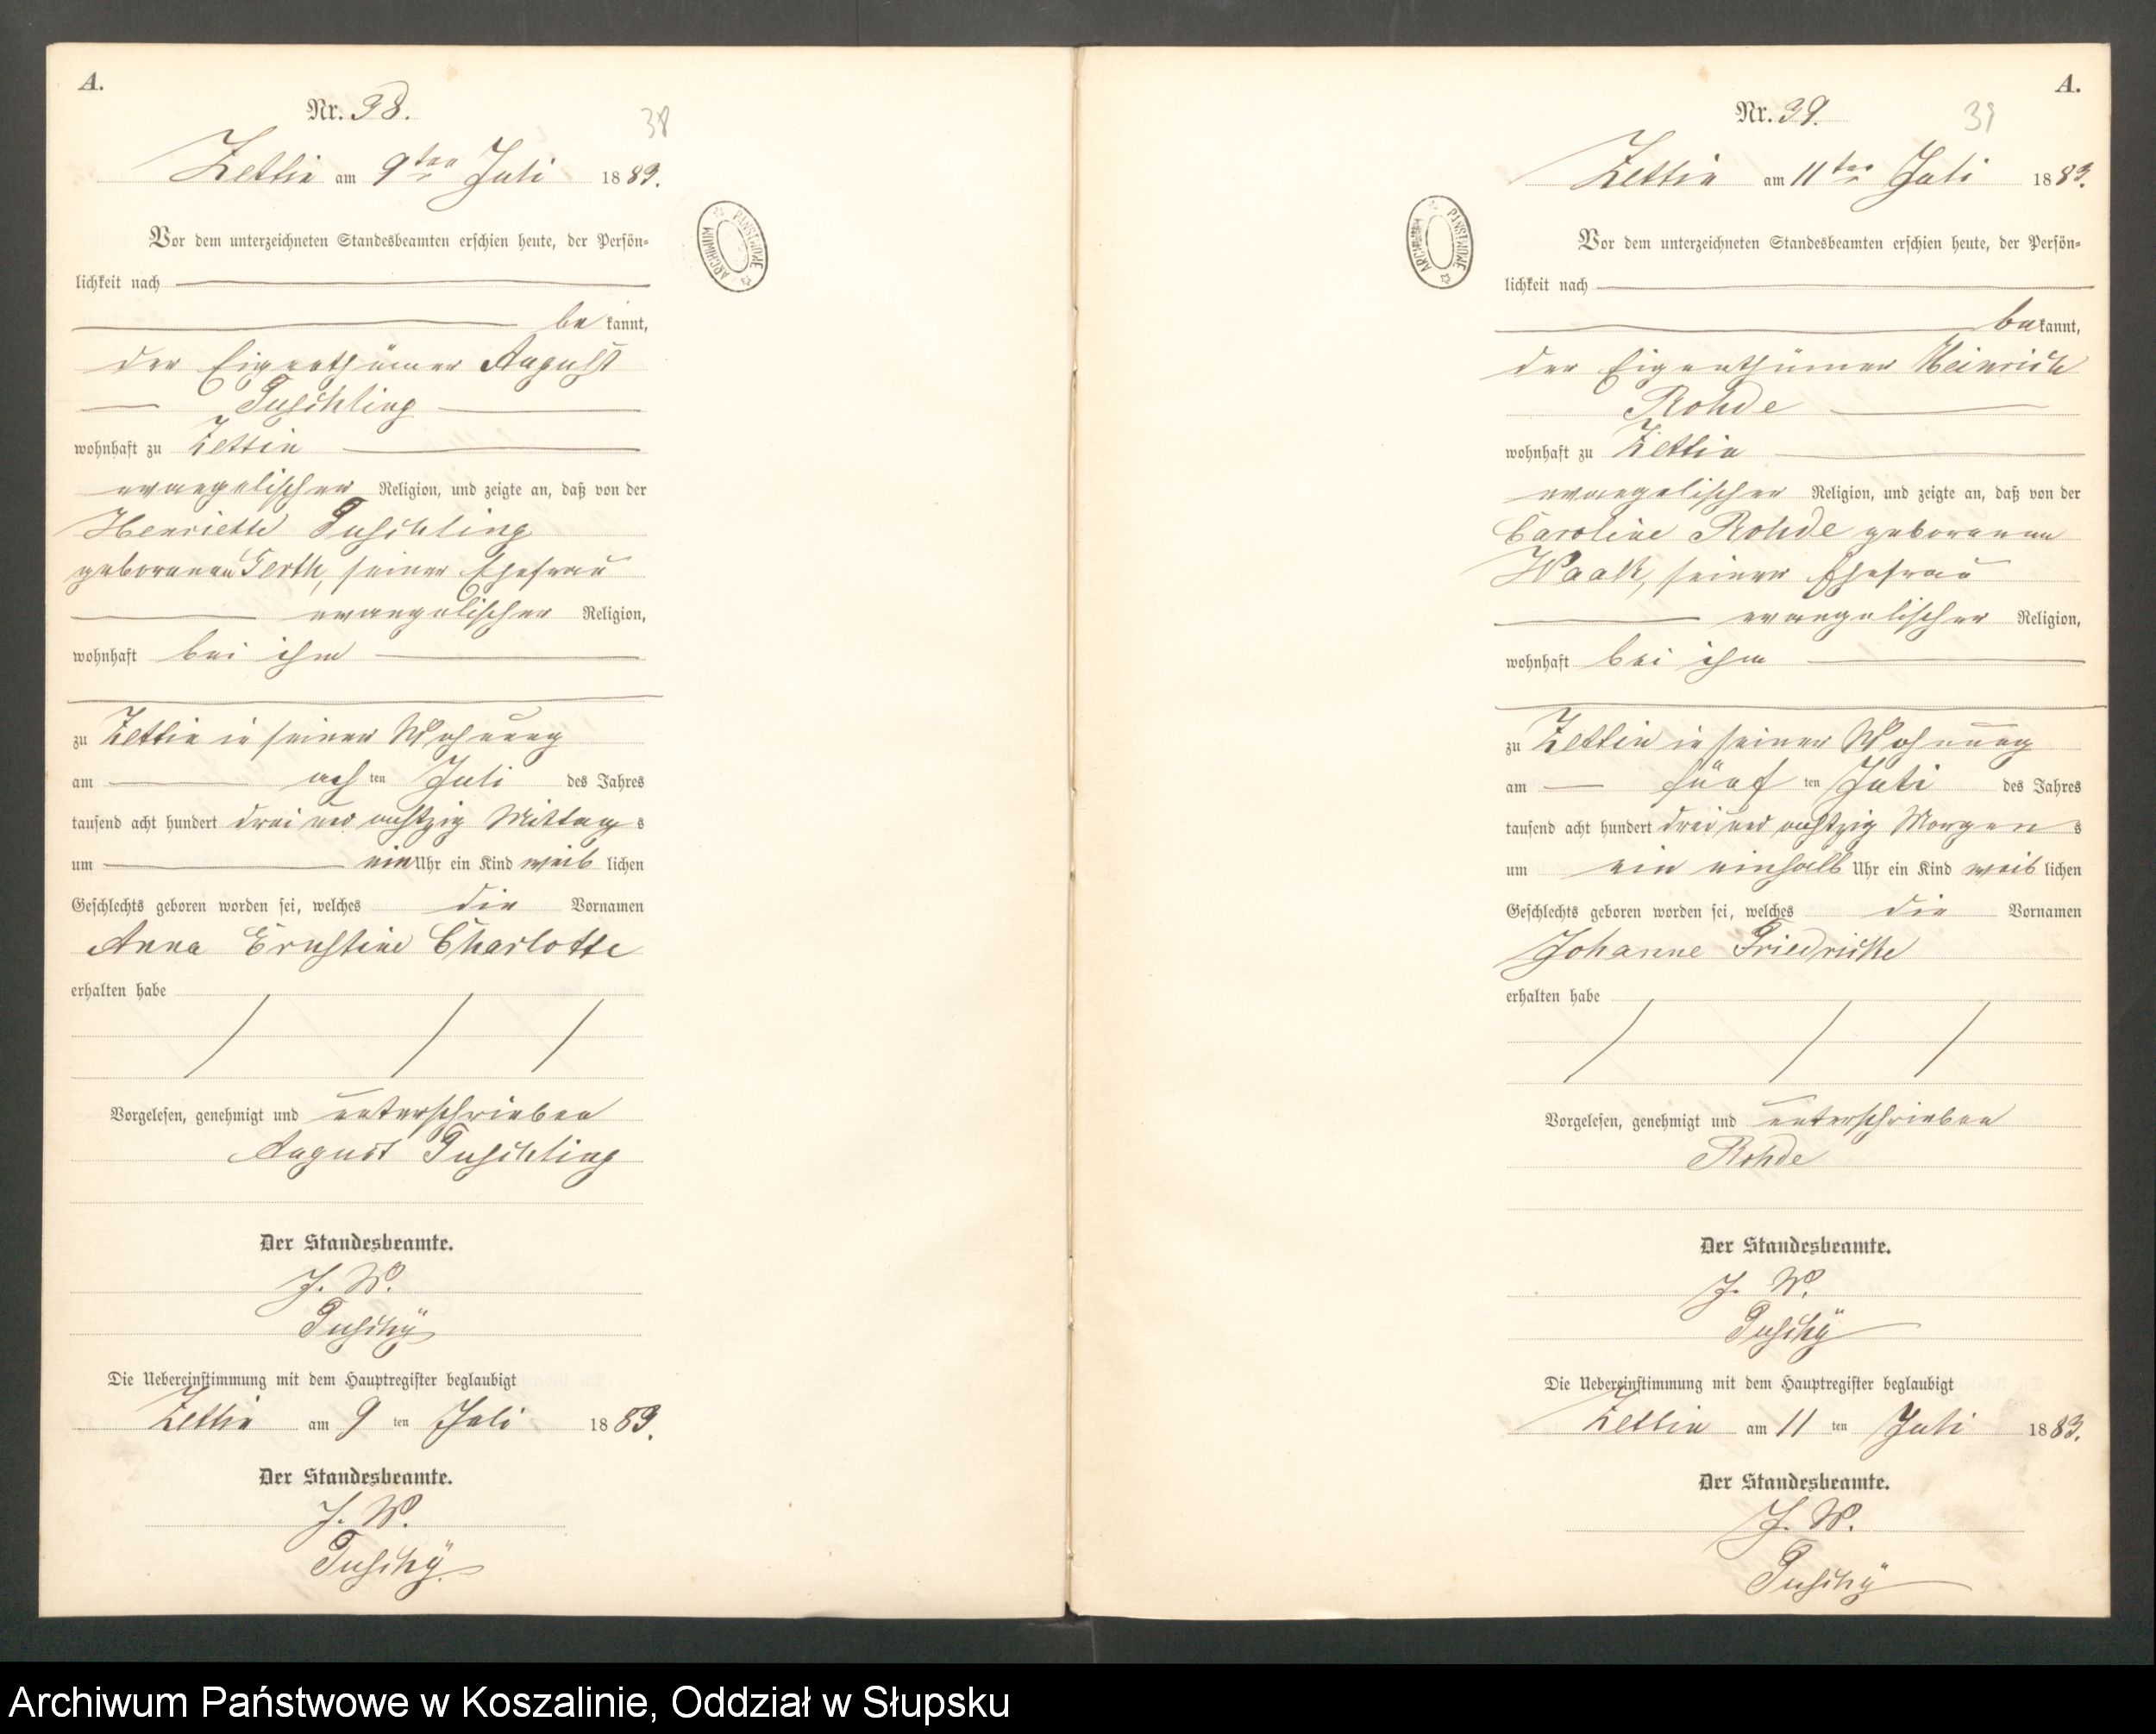 A.
Nr. 38.
38
Zettin am 9ten Juli 1883.
Vor dem unterzeichneten Standesbeamten erschien heute, der Persön-
lichkeit nach
be kannt,
der Eigenthümer August
Tuschling
wohnhaft zu Zettin
evangelischer Religion, und zeigte an, daß von der
Henriette Tuschling
geborenen Gerth, seiner Ehefrau
evangelischer Religion,
wohnhaft bei ihm
zu Zettin in seiner Wohnung
am ach ten Juli des Jahres
tausend acht hundert drei und achtzig Mittag s
um ein Uhr ein Kind weib lichen
Geschlechts geboren worden sei, welches die Vornamen
Anna Ernstine Charlotte
erhalten habe
Vorgelesen, genehmigt und unterschrieben
August Tuschling
Der Standesbeamte.
J. V.
Die Uebereinstimmung mit dem Hauptregister beglaubigt
Zettin am 9 ten Juli 1883.
Der Standesbeamte.
J. V.
ARCHIWUM PAŃSTWOWE
A.
Nr. 39.
39
Zettin am 11ten Juli 1883.
Vor dem unterzeichneten Standesbeamten erschien heute, der Persön-
lichkeit nach
bekannt,
der Eigenthümer Heinrich
Rohde
wohnhaft zu Zettin
evangelischer Religion, und zeigte an, daß von der
Caroline Rohde geborenen
Waalk, seiner Ehefrau
evangelischer Religion,
wohnhaft bei ihm
zu Zettin in seiner Wohnung
am fünf ten Juli des Jahres
tausend acht hundert drei und achtzig Morgen s
um ein einhalb Uhr ein Kind weib lichen
Geschlechts geboren worden sei, welches die Vornamen
Johanne Friedricke
erhalten habe
Vorgelesen, genehmigt und unterschrieben
Rohde
Der Standesbeamte.
J. V.
Die Uebereinstimmung mit dem Hauptregister beglaubigt
Zettin am 11 ten Juli 1883.
Der Standesbeamte.
J. V.
ARCHIWUM PAŃSTWOWE
Archiwum Państwowe w Koszalinie, Oddział w Słupsku